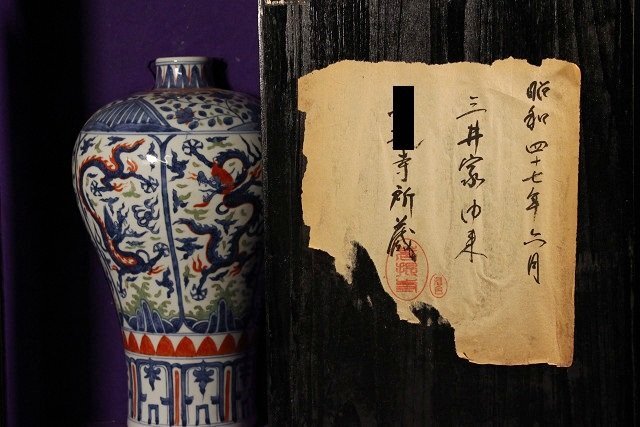 昭和四十七年六月
三井家由来
寺所蔵